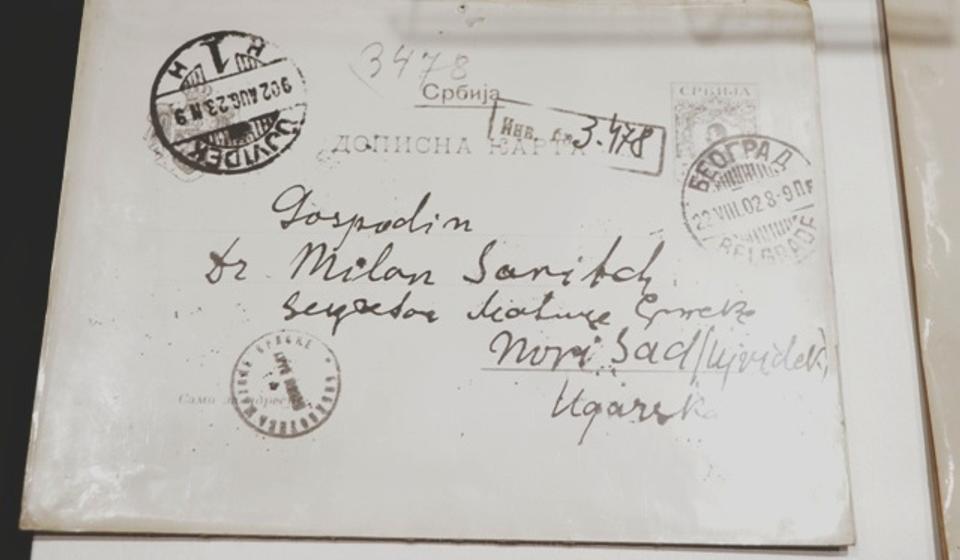 3478
Србија
СРБИЈА
Инв. бр. 3.478
ДОПИСНА КАРТА
ÚJVIDÉK
902 AUG. 23. N 9
1
БЕОГРАД
22 VIII.02 8-9 ПР
BELGRADE
Gospodin
Dr Milan Savitch
секретар Матице Српске
Novi Sad (Ujvidek)
Ugarska
Само за адресу